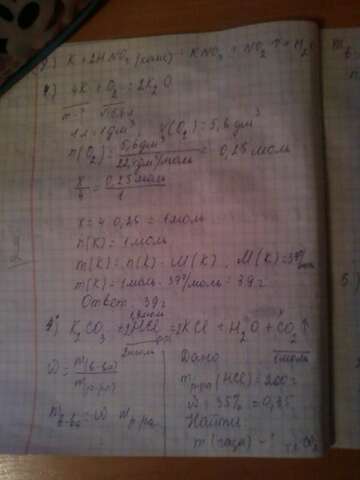 K + 2HNO₃ (конс) = KNO₃ + NO₂ ↑ + H₂O
4K + O₂ = 2K₂O
m - ?
1л = 1дм³ V(O₂) = 5,6 дм³
n(O₂) = 5,6дм³ / 22,4дм³/моль = 0,25 моль
x / 4 = 0,25 моль / 1
x = 4 · 0,25 = 1 моль
n(K) = 1 моль
m(K) = n(K) · M(K), M(K) = 39 г/моль
m(K) = 1 моль · 39 г/моль = 39 г
Ответ: 39 г
K₂CO₃ + 2HCl = 2KCl + H₂O + CO₂ ↑
2моль 1моль
ω = m(в-ва) / m(р-ра)
Дано
m р-ра (HCl) = 200 г
ω = 35% = 0,35
m в-ва = ω · m р-ра
Найти
m (газа) - ? CO₂